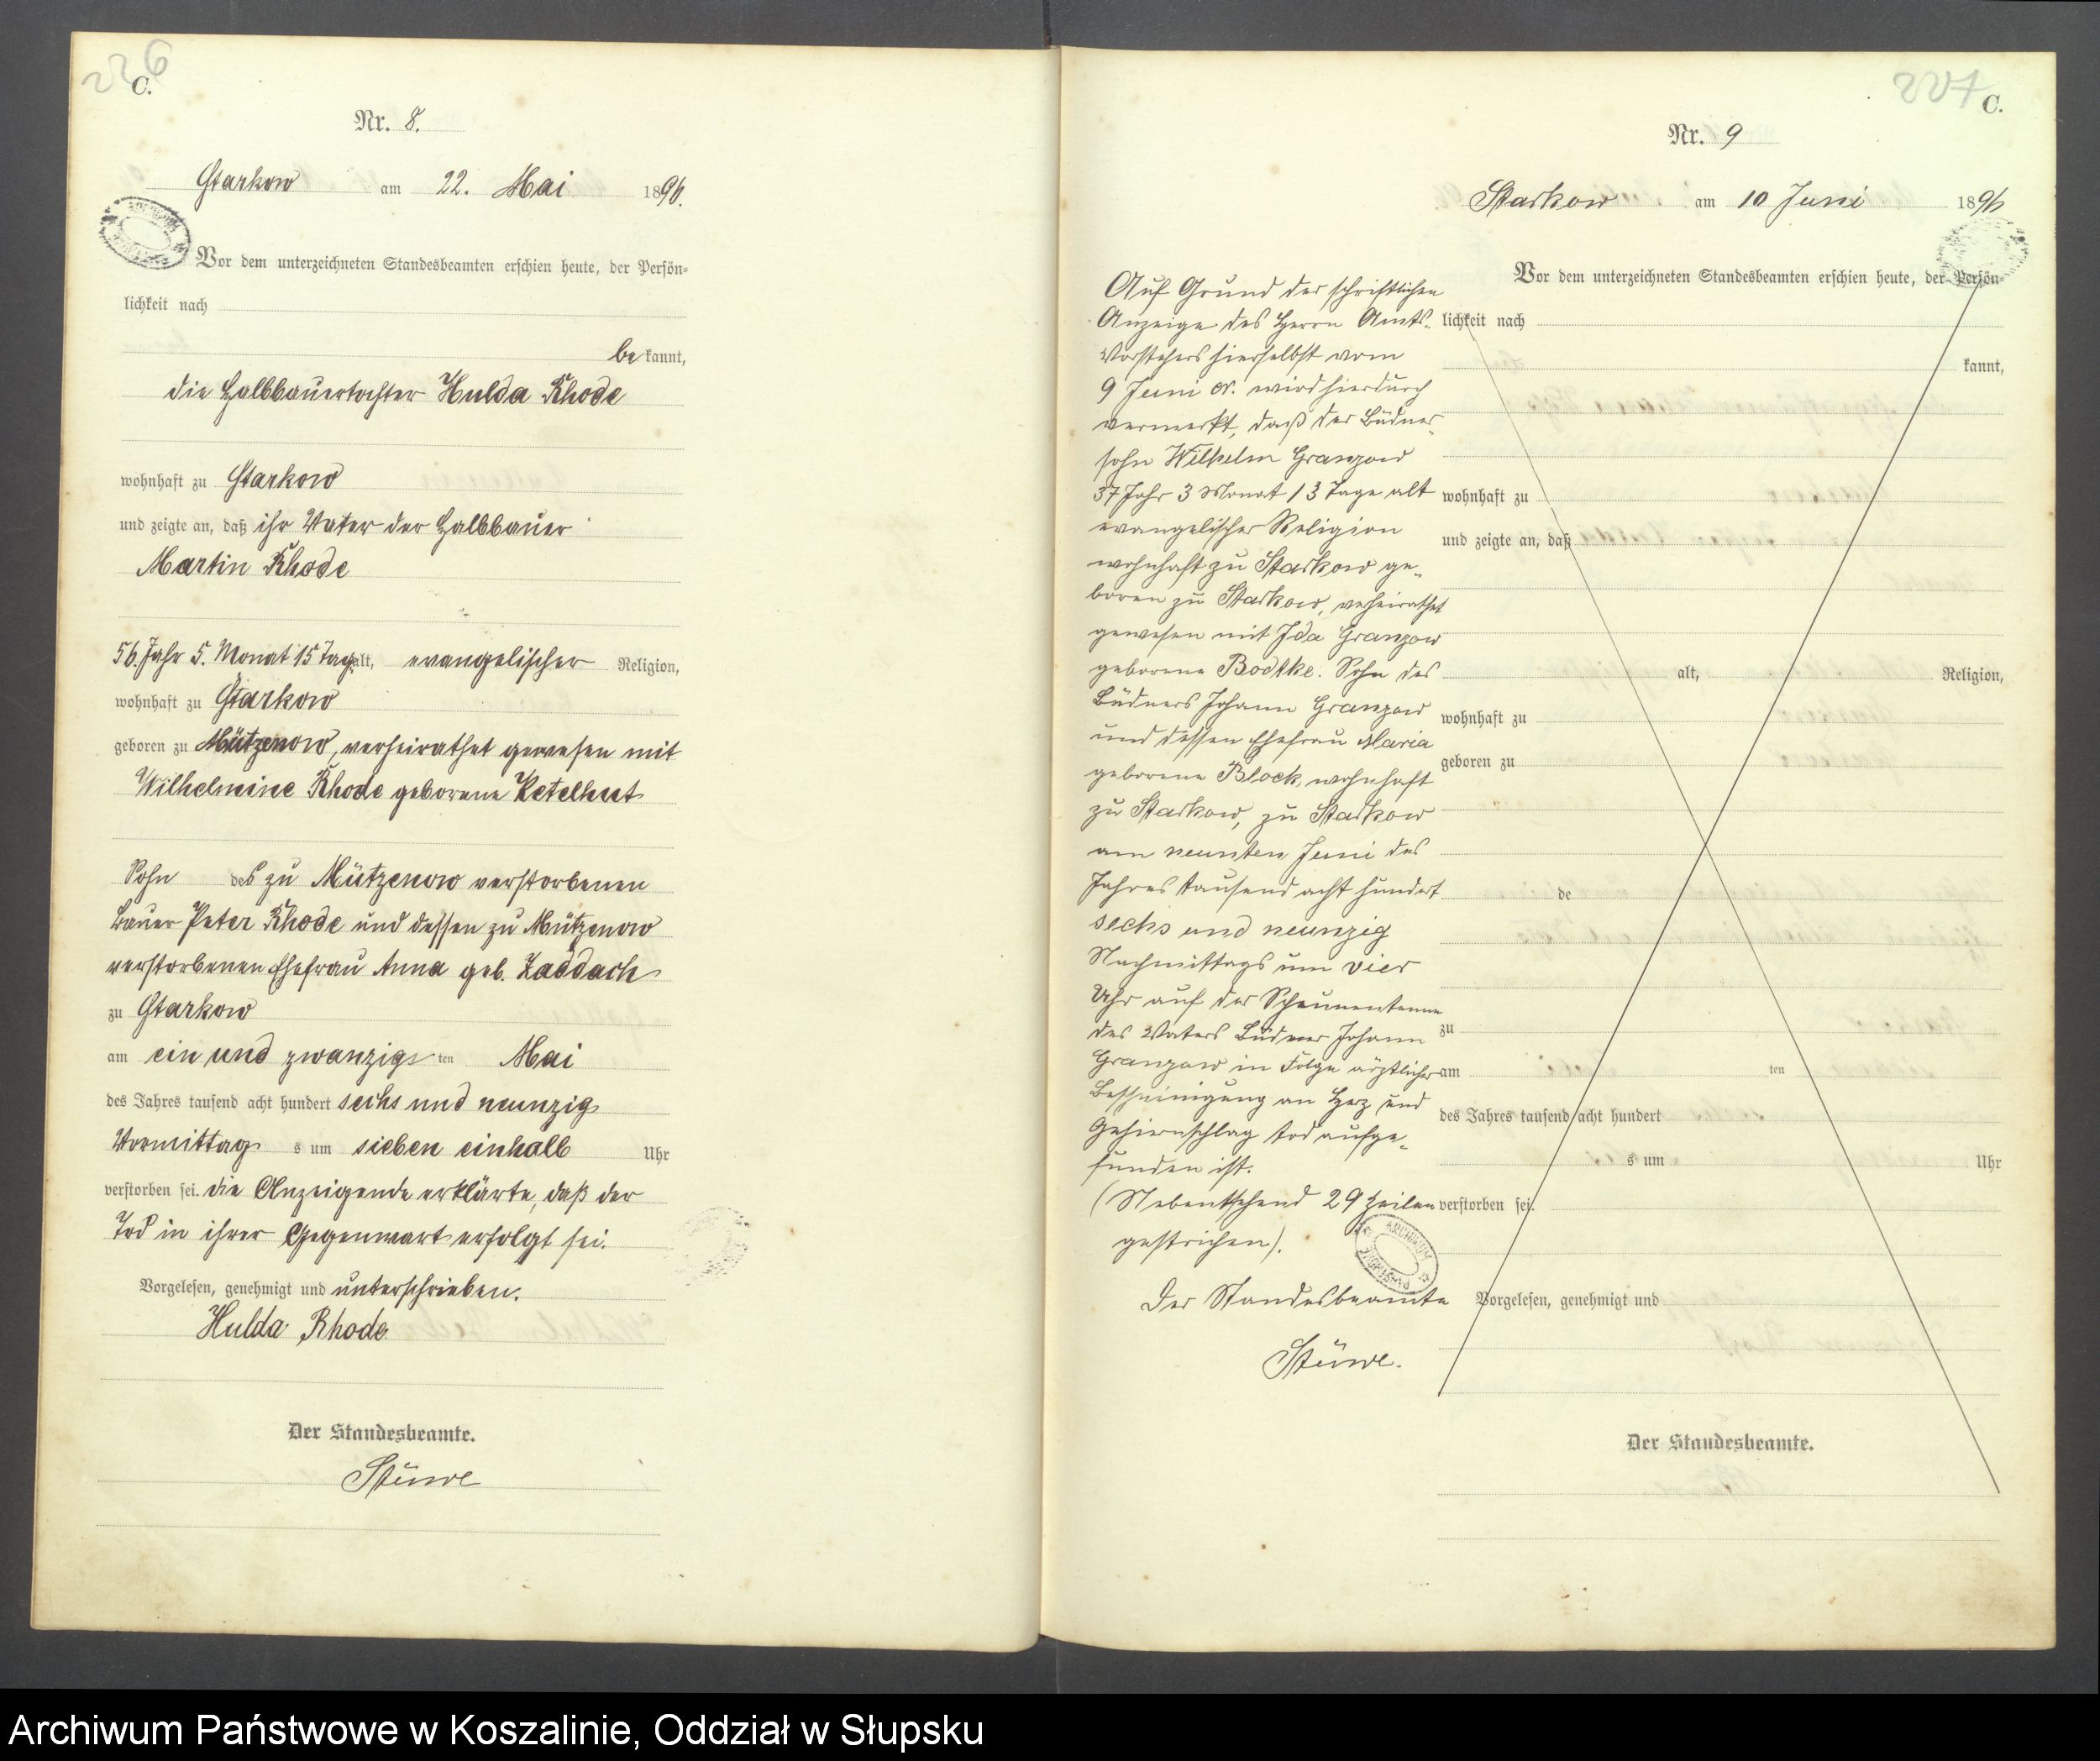 226
C.
Nr. 8.
Starkow am 22. Mai 1896.
Vor dem unterzeichneten Standesbeamten erschien heute, der Persön-
lichkeit nach
be kannt,
die Halbbauertochter Hulda Rhode
wohnhaft zu Starkow
und zeigte an, daß ihr Vater der Halbbauer
Martin Rhode
56. Jahr 5. Monat 15 Tage alt, evangelischer Religion,
wohnhaft zu Starkow
geboren zu Mützenow, verheirathet gewesen mit
Wilhelmine Rhode geborene Ketelhut
Sohn des zu Mützenow verstorbenen
Bauer Peter Rhode und dessen zu Mützenow
verstorbenen Ehefrau Anna geb. Zaddach
zu Starkow
am ein und zwanzigsten Mai
des Jahres tausend acht hundert sechs und neunzig
Vormittags um sieben einhalb Uhr
verstorben sei. die Anzeigende erklärte, daß der
Tod in ihrer Gegenwart erfolgt sei.
Vorgelesen, genehmigt und unterschrieben.
Hulda Rhode
Der Standesbeamte.
Stüwe
227
C.
Nr. 9
Starkow am 10 Juni 1896
Auf Grund der schriftlichen
Anzeige des Herrn Amts-
Vorstehers hierselbst vom
9 Juni cr. wird hierdurch
vermerkt, daß der Büdner-
sohn Wilhelm Granzow
37 Jahr 3 Monat 13 Tage alt
evangelischer Religion
wohnhaft zu Starkow ge-
boren zu Starkow, verheirathet
gewesen mit Ida Granzow
geborene Bodtke. Sohn des
Büdners Johann Granzow
und dessen Ehefrau Maria
geborene Block, wohnhaft
zu Starkow, zu Starkow
am neunten Juni des
Jahres tausend acht hundert
sechs und neunzig
Nachmittags um vier
Uhr auf der Scheunentenne
des Vaters Büdner Johann
Granzow in Folge ärztlicher
Bescheinigung an Herz und
Gehirnschlag tod aufge-
funden ist.
(Nebenstehend 29 Zeilen
gestrichen).
Der Standesbeamte
Stüwe.
Vor dem unterzeichneten Standesbeamten erschien heute, der Persön-
lichkeit nach
kannt,
wohnhaft zu
und zeigte an, daß
alt, Religion,
wohnhaft zu
geboren zu
de
zu
am ten
des Jahres tausend acht hundert
s um Uhr
verstorben sei.
Vorgelesen, genehmigt und
Der Standesbeamte.
Archiwum Państwowe w Koszalinie, Oddział w Słupsku